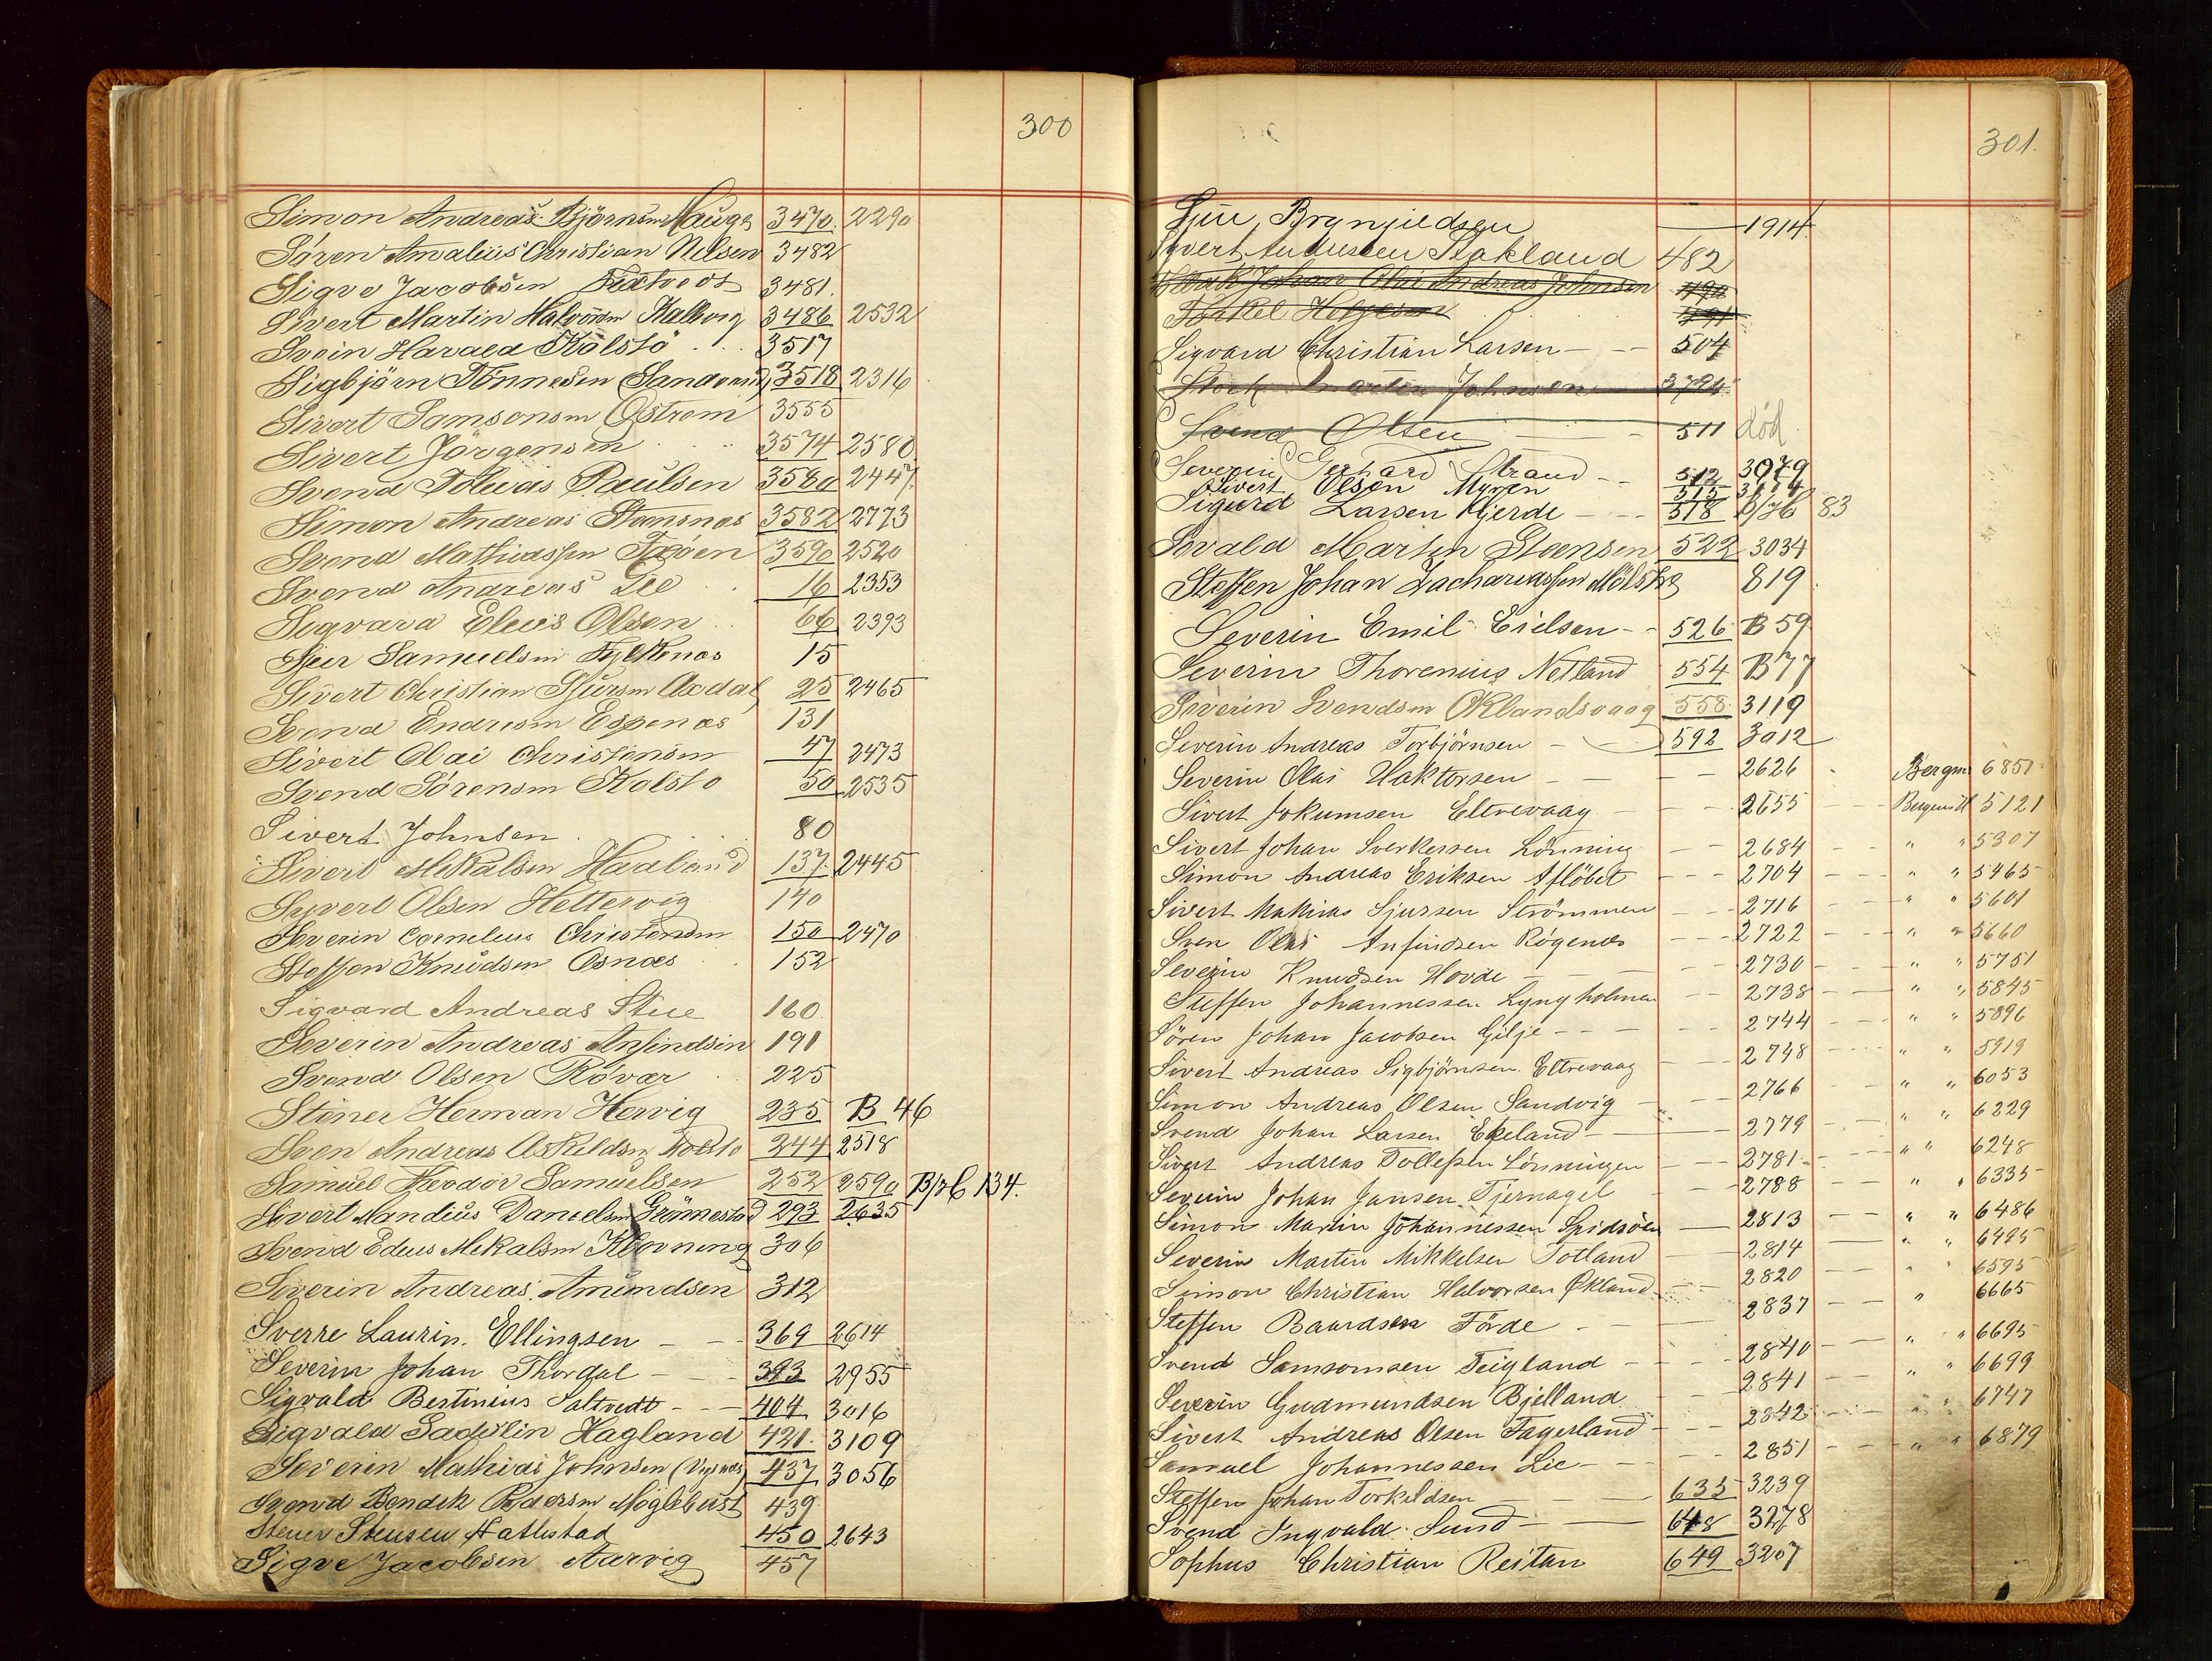 300
Simon Andreas Bjørnsen Hauge 3470. 2290
Søren Amalius Christian Nilsen 3482
Sigve Jacobsen 3481.
Sivert Martin Halvorsen 3486 2532
Svein Harald Kolstø 3517
Sigbjörn Tönnesen Sandvig 3518 2316
Sivert Samsonsen Østrem 3555
Sivert Jörgensen 3574 2580
Svend Tobias Paulsen 3580 2447.
Simon Andreas Stensnæs 3582 2773
Svend Mathiassen 3590 2520
Svend Andreas Lie 16 2353
Sigvard Elias Olsen 66 2393
Sjur Samuelsen 15
Sivert Christian Sjursen 25 2465
Svend Endresen Espenæs 131
Sivert Olai Christensen 47 2473
Svend Sörensen Kolstø 50 2535
Sivert Johnsen 80
Sivert Mikalsen Haaland 137. 2445
Syvert Olsen Hettervig 140
Severin Cornelius Christensen 150 2470
Steffen Knudsen Osnæs 152
Sigvard Andreas Stue 160.
Severin Andreas Anfindsen 191
Svend Olsen Røvær 225
Steiner Herman Hervig 235 B 46
Sven Andreas Askildsen Kolstø 244 2518
Samuel Theodor Samuelsen 252 2590 B/76 134.
Sivert Mandius Danielsen Grönnestad 293 2635
Svend Edeus Mikalsen Klovning 306
Severin Andreas Amundsen 312
Sverre Laurin. Ellingsen 369 2614
Severin Johan Thordal 393 2955
Sigvald Bertinius Saltvedt 404 3016
Sigvald Gadulin Hagland 421. 3109
Severin Mathias Johnsen (Vigsnæs) 437 3056
Svend Bendik Pedersen Møglebust 439
Steiner Steinsen 450 2643
Sigve Jacobsen Aarvig 457
301.
Sjur Brynjildsen 1914
Syvert Andersen Stokland 482
Johan Olai Andreas Johnsen 490
Torkel Helgesen 491
Sigvard Christian Larsen 504
Martin Johnsen 3794
Svend Olsen 511 død.
Severin Gerhard Strand 512 3079
Sivert Olsen Myren 515
Sigurd Larsen Gjerde 518 B/76 83
Sevald Martin Steensen 522 3034
Steffen Johan Zachariassen Mölstre 819.
Severin Emil Eielsen 526 B 59
Severin Thorenius Netland 554 B 77
Severin Svendsen Øklandsvaag 558. 3119
Severin Andreas Torbjörnsen 592 3012
Severin Olai Haktorsen 2626 Bergen 6851
Sivert Jokumsen Eltrevaag 2655 5121
Sivert Johan Sverkersen Lönning 2684 " " 5307
Simon Andreas Eriksen Aflöbet 2704 " " 5465
Sivert Mathias Sjursen Strömmen 2716 " " 5601
Sven Olai Anfindsen Røgenæs 2722 " " 5660
Severin Knudsen Hovde 2730 " " 5751
Steffen Johannessen Lyngholmen 2738 " " 5845
Sören Johan Jacobsen Gilje 2744 " " 5896
Sivert Andreas Sigbjörnsen Eltrevaag 2748 " " 5919
Simon Andreas Olsen Sandvig 2766 " " 6053
Svend Johan Larsen Ekeland 2779 " " 6229
Sivert Andreas Tollefsen Lönningen 2781 " " 6248
Severin Johan Jansen Tjernagel 2788 " " 6335
Simon Martin Johannessen Spidsöen 2813 " " 6486
Severin Martin Mikkelsen Totland 2814 " " 6495
Simon Christian Halvorsen Økland 2820 " 6595
Steffen Baardsen Förde 2837 " 6665
Svend Samsonsen Teigland 2840 " " 6695
Severin Gudmundsen Bjelland 2841 " " 6699
Sivert Andreas Olsen Fagerland 2842 " " 6747
Samuel Johannessen Lie 2851 " " 6879
Steffen Johan Torkildsen 635 3239
Svend Ingvald Sund 648 3278
Sophus Christian Reitan 649 3207